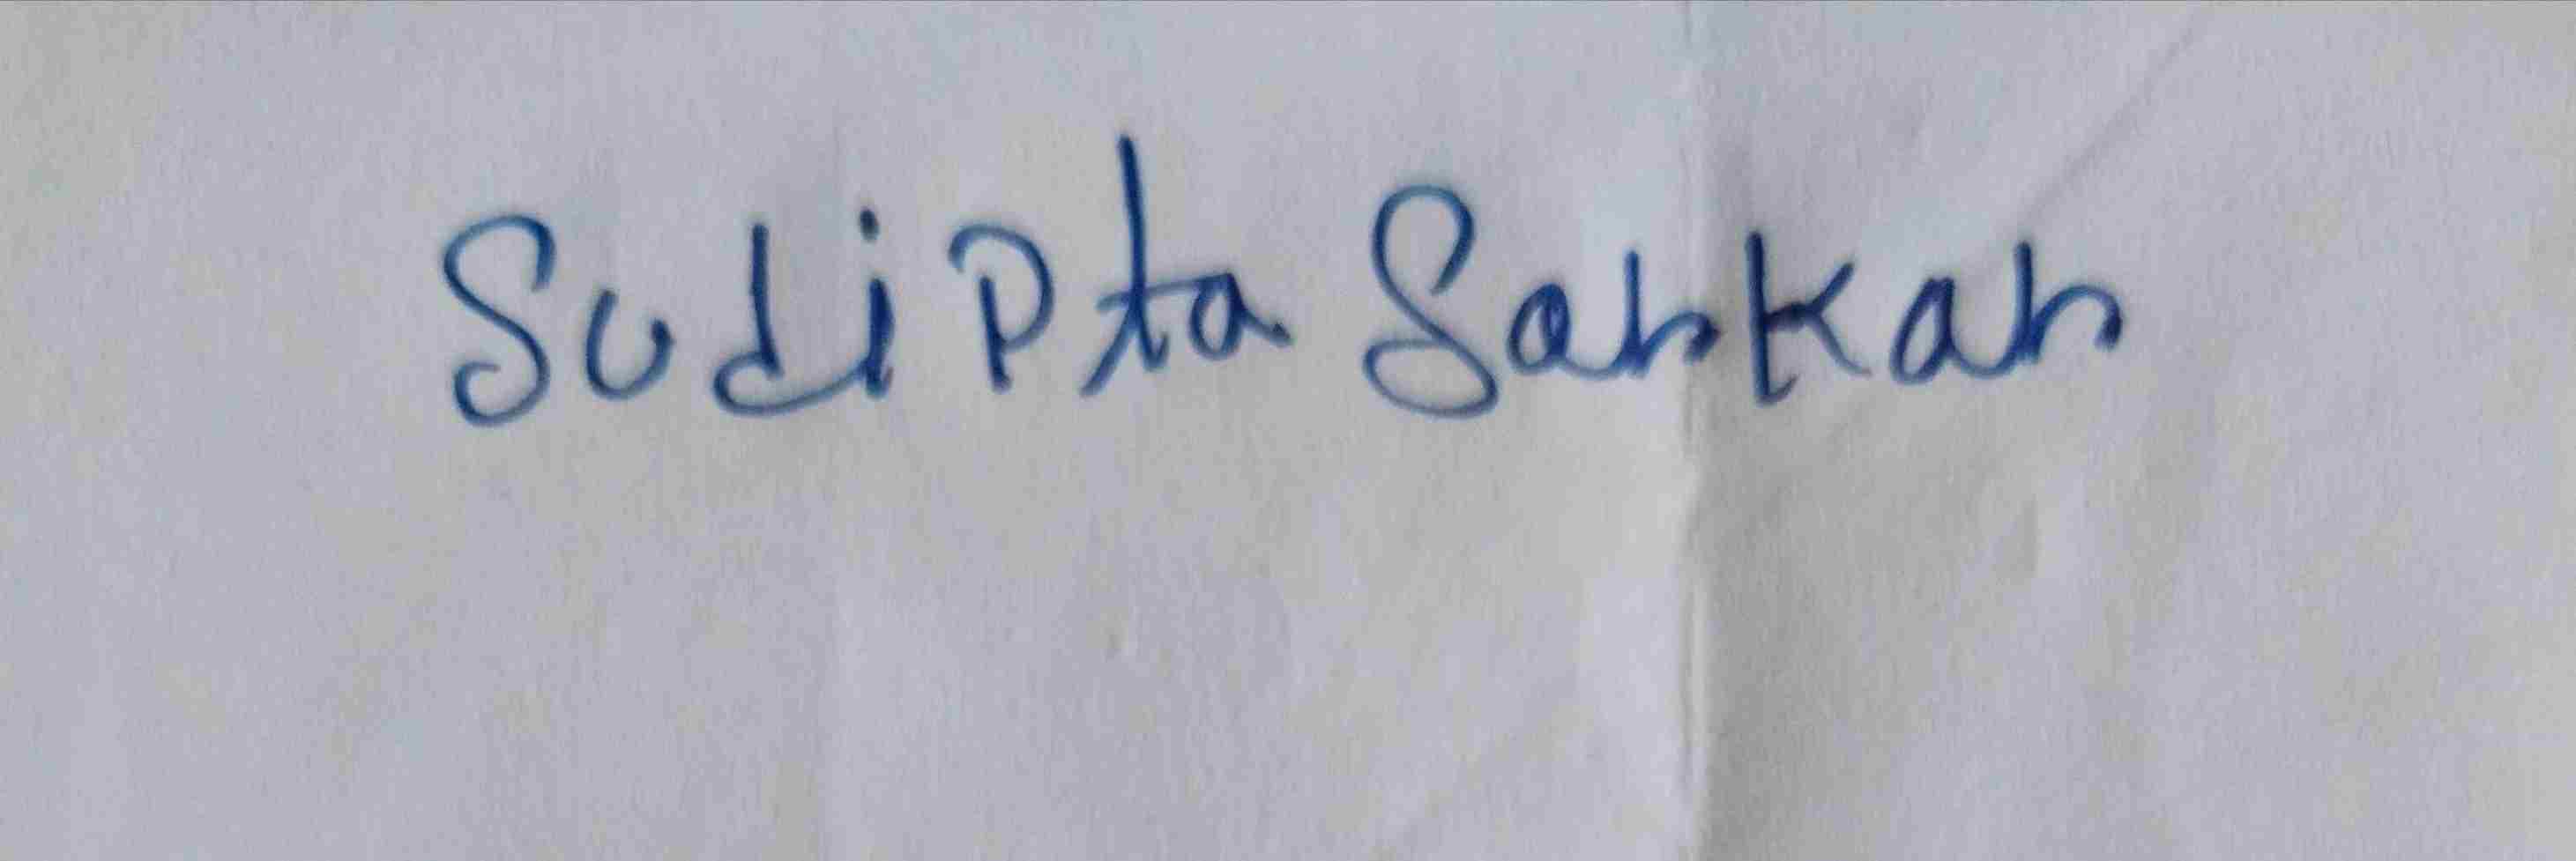 Sudipta Sarkar